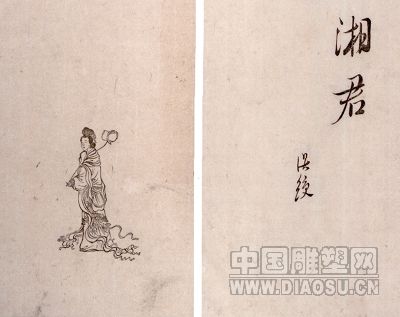 湘君
中国雕塑网
WWW.DIAOSU.CN